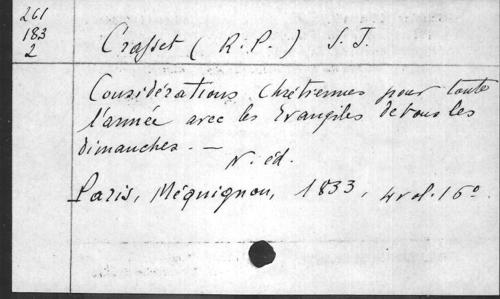 261
183
2
Crasset (R.P.) S.J.
Considérations Chrétiennes pour toute
l'année avec les Evangiles de tous les
dimanches. —
N. éd.
Paris, Méquignon, 1833, 4 vol. 16°.